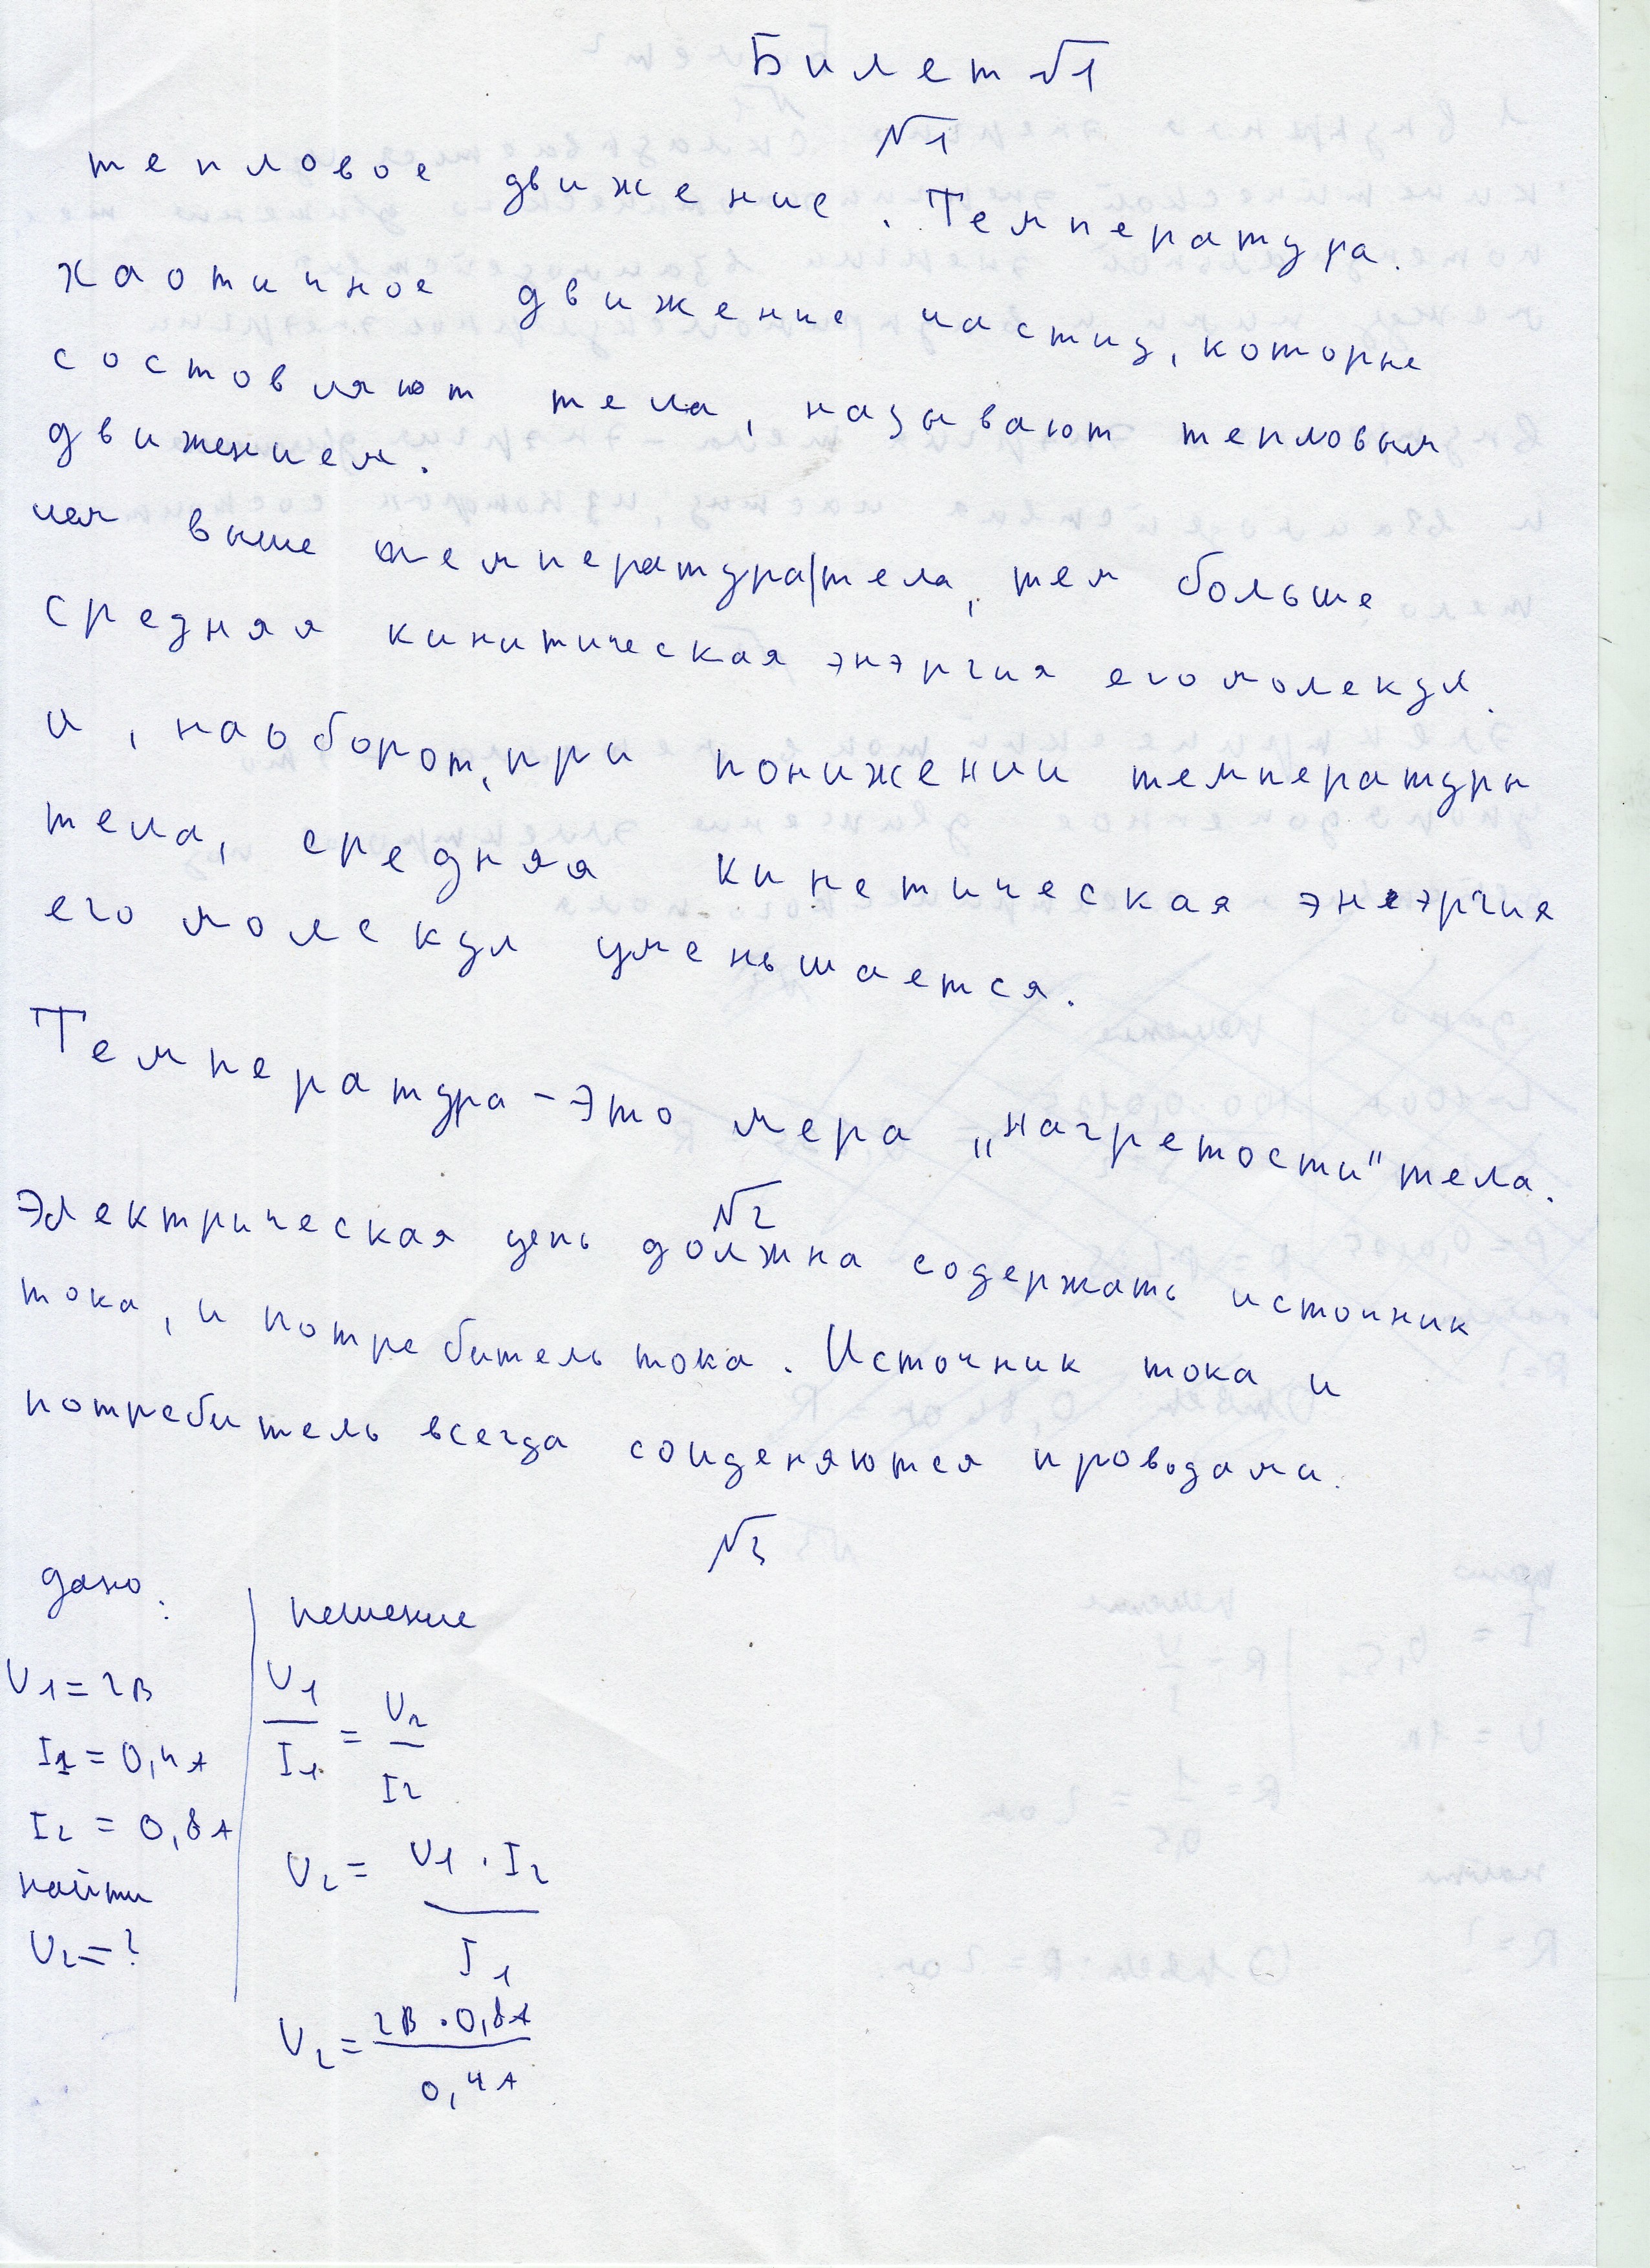 Билет №1
№1
тепловое движение. Температура.
хаотичное движение частиц, которые
состовляют тела, называют тепловым
движением.
чем выше температура тела, тем больше
средняя кинитическая энэргия его молекул.
и, наоборот, при понижении температуры
тела, средняя кинетическая энэргия
его молекул уменьшается.
Температура - Это мера „нагретости" тела.
№2
Электрическая цепь должна содержать источник
тока, и потребитель тока. Источник тока и
потребитель всегда соиденяются проводами.
№3
дано:
U1 = 2В
I1 = 0,4 А
I2 = 0,8 А
найти
U2 = ?
решение
U1/I1 = U2/I2
U2 = U1 · I2 / I1
U2 = 2В · 0,8А / 0,4 А